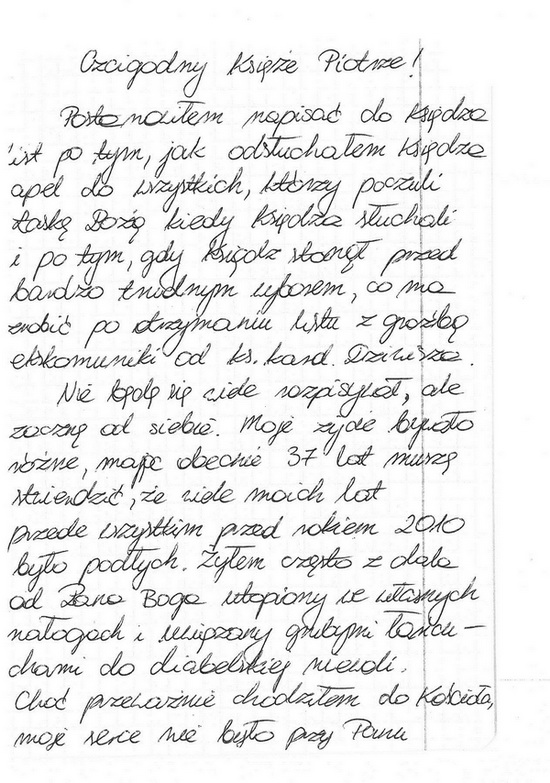 Czcigodny Księże Piotrze!
Postanowiłem napisać do Księdza
list po tym, jak odsłuchałem Księdza
apel do wszystkich, którzy poczuli
łaskę Bożą kiedy Księdza słuchali
i po tym, gdy Ksiądz stanął przed
bardzo trudnym wyborem, co ma
zrobić po otrzymaniu listu z groźbą
ekskomuniki od ks. kard. Dziwisza.
Nie będę się wiele rozpisywał, ale
zacznę od siebie. Moje życie bywało
różne, mając obecnie 37 lat muszę
stwierdzić, że wiele moich lat
przede wszystkim przed rokiem 2010
było podłych. Żyłem często z dala
od Pana Boga utopiony we własnych
nałogach i uwiązany grubymi łańcu-
chami do diabelskiej niewoli.
Choć przeważnie chodziłem do Kościoła,
moje serce nie było przy Panu